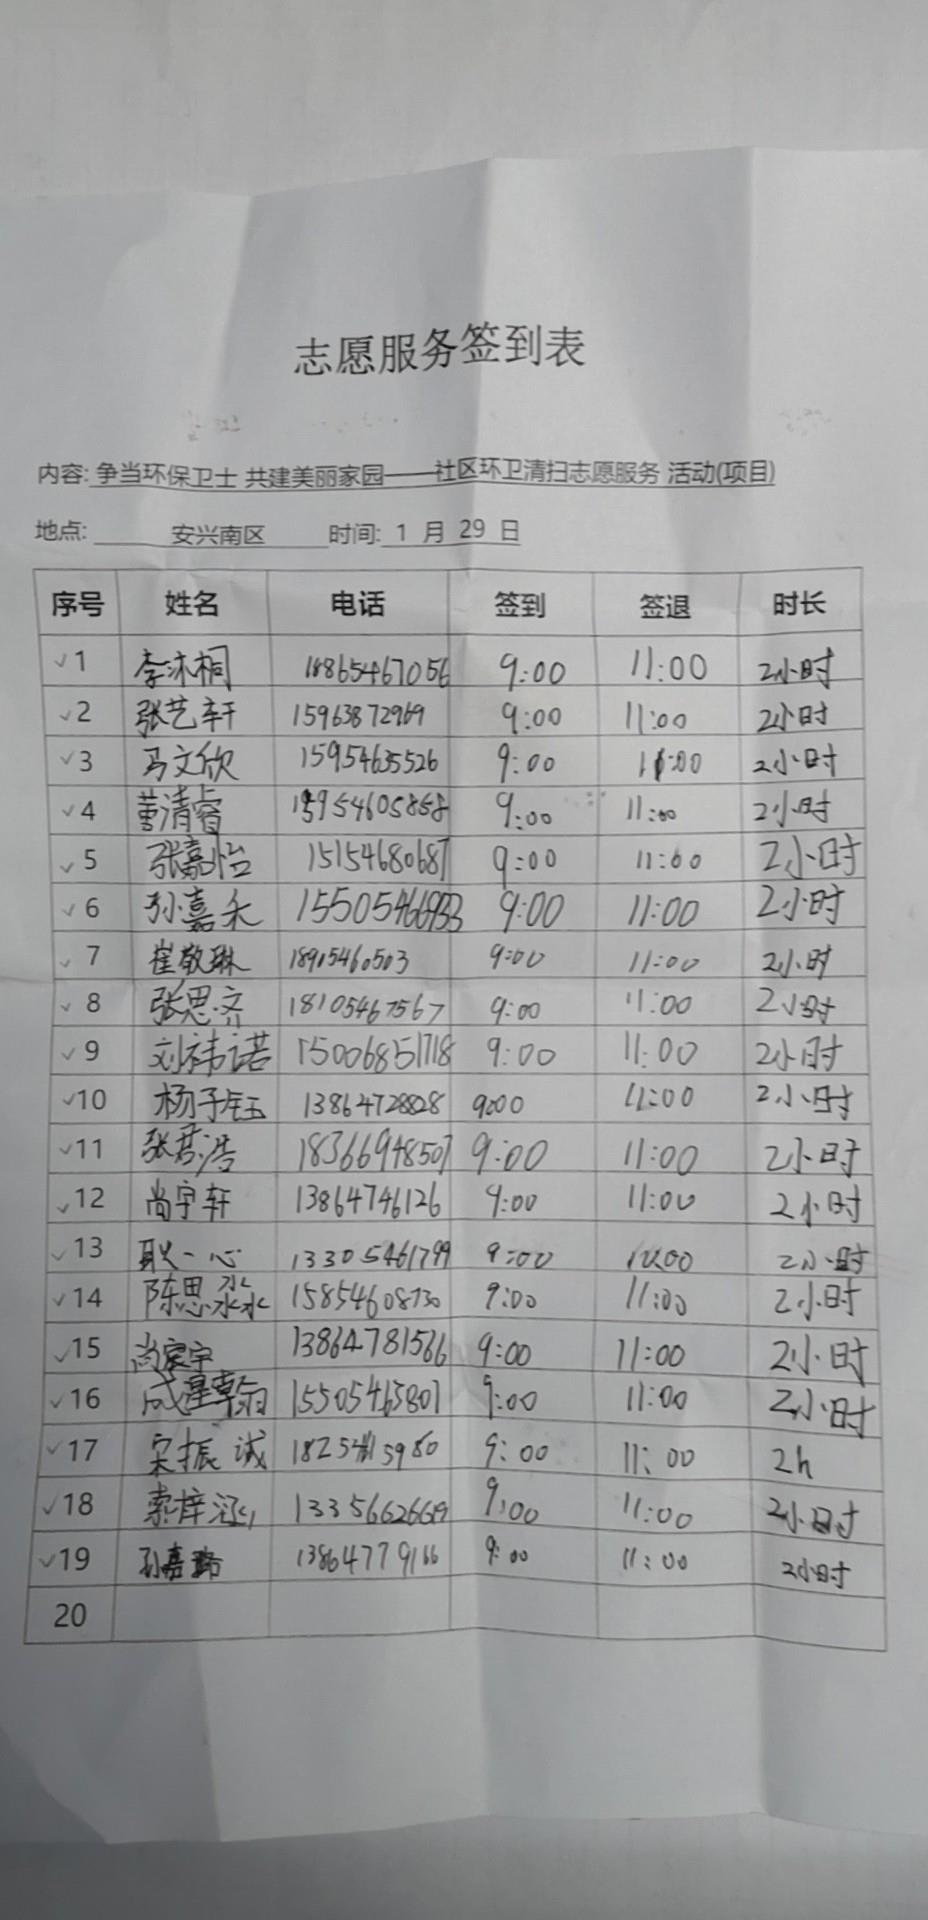 志愿服务签到表
内容: 争当环保卫士 共建美丽家园——社区环卫清扫志愿服务 活动(项目)
地点: 安兴南区 时间: 1 月 29 日
序号 姓名 电话 签到 签退 时长
✓1 李沐桐 18865467056 9:00 11:00 2小时
✓2 张艺轩 15963872969 9:00 11:00 2小时
✓3 马文欣 15954635526 9:00 11:00 2小时
✓4 董清睿 15954605858 9:00 11:00 2小时
✓5 张嘉怡 15154680687 9:00 11:00 2小时
✓6 孙嘉禾 15505466933 9:00 11:00 2小时
✓7 崔敬琳 18905460503 9:00 11:00 2小时
✓8 张思齐 18105467567 9:00 11:00 2小时
✓9 刘祎诺 15006851718 9:00 11:00 2小时
✓10 杨子钰 13864728828 9:00 11:00 2小时
✓11 张君浩 18366948507 9:00 11:00 2小时
✓12 尚宇轩 13864746126 9:00 11:00 2小时
✓13 耿一心 13305461799 9:00 11:00 2小时
✓14 陈思淼 15854608730 9:00 11:00 2小时
✓15 尚宸宇 13864781566 9:00 11:00 2小时
✓16 15505465807 9:00 11:00 2小时
✓17 宋振诚 9:00 11:00 2h
✓18 索梓涵 9:00 11:00 2小时
✓19 孙嘉璐 13864779166 9:00 11:00 2小时
20